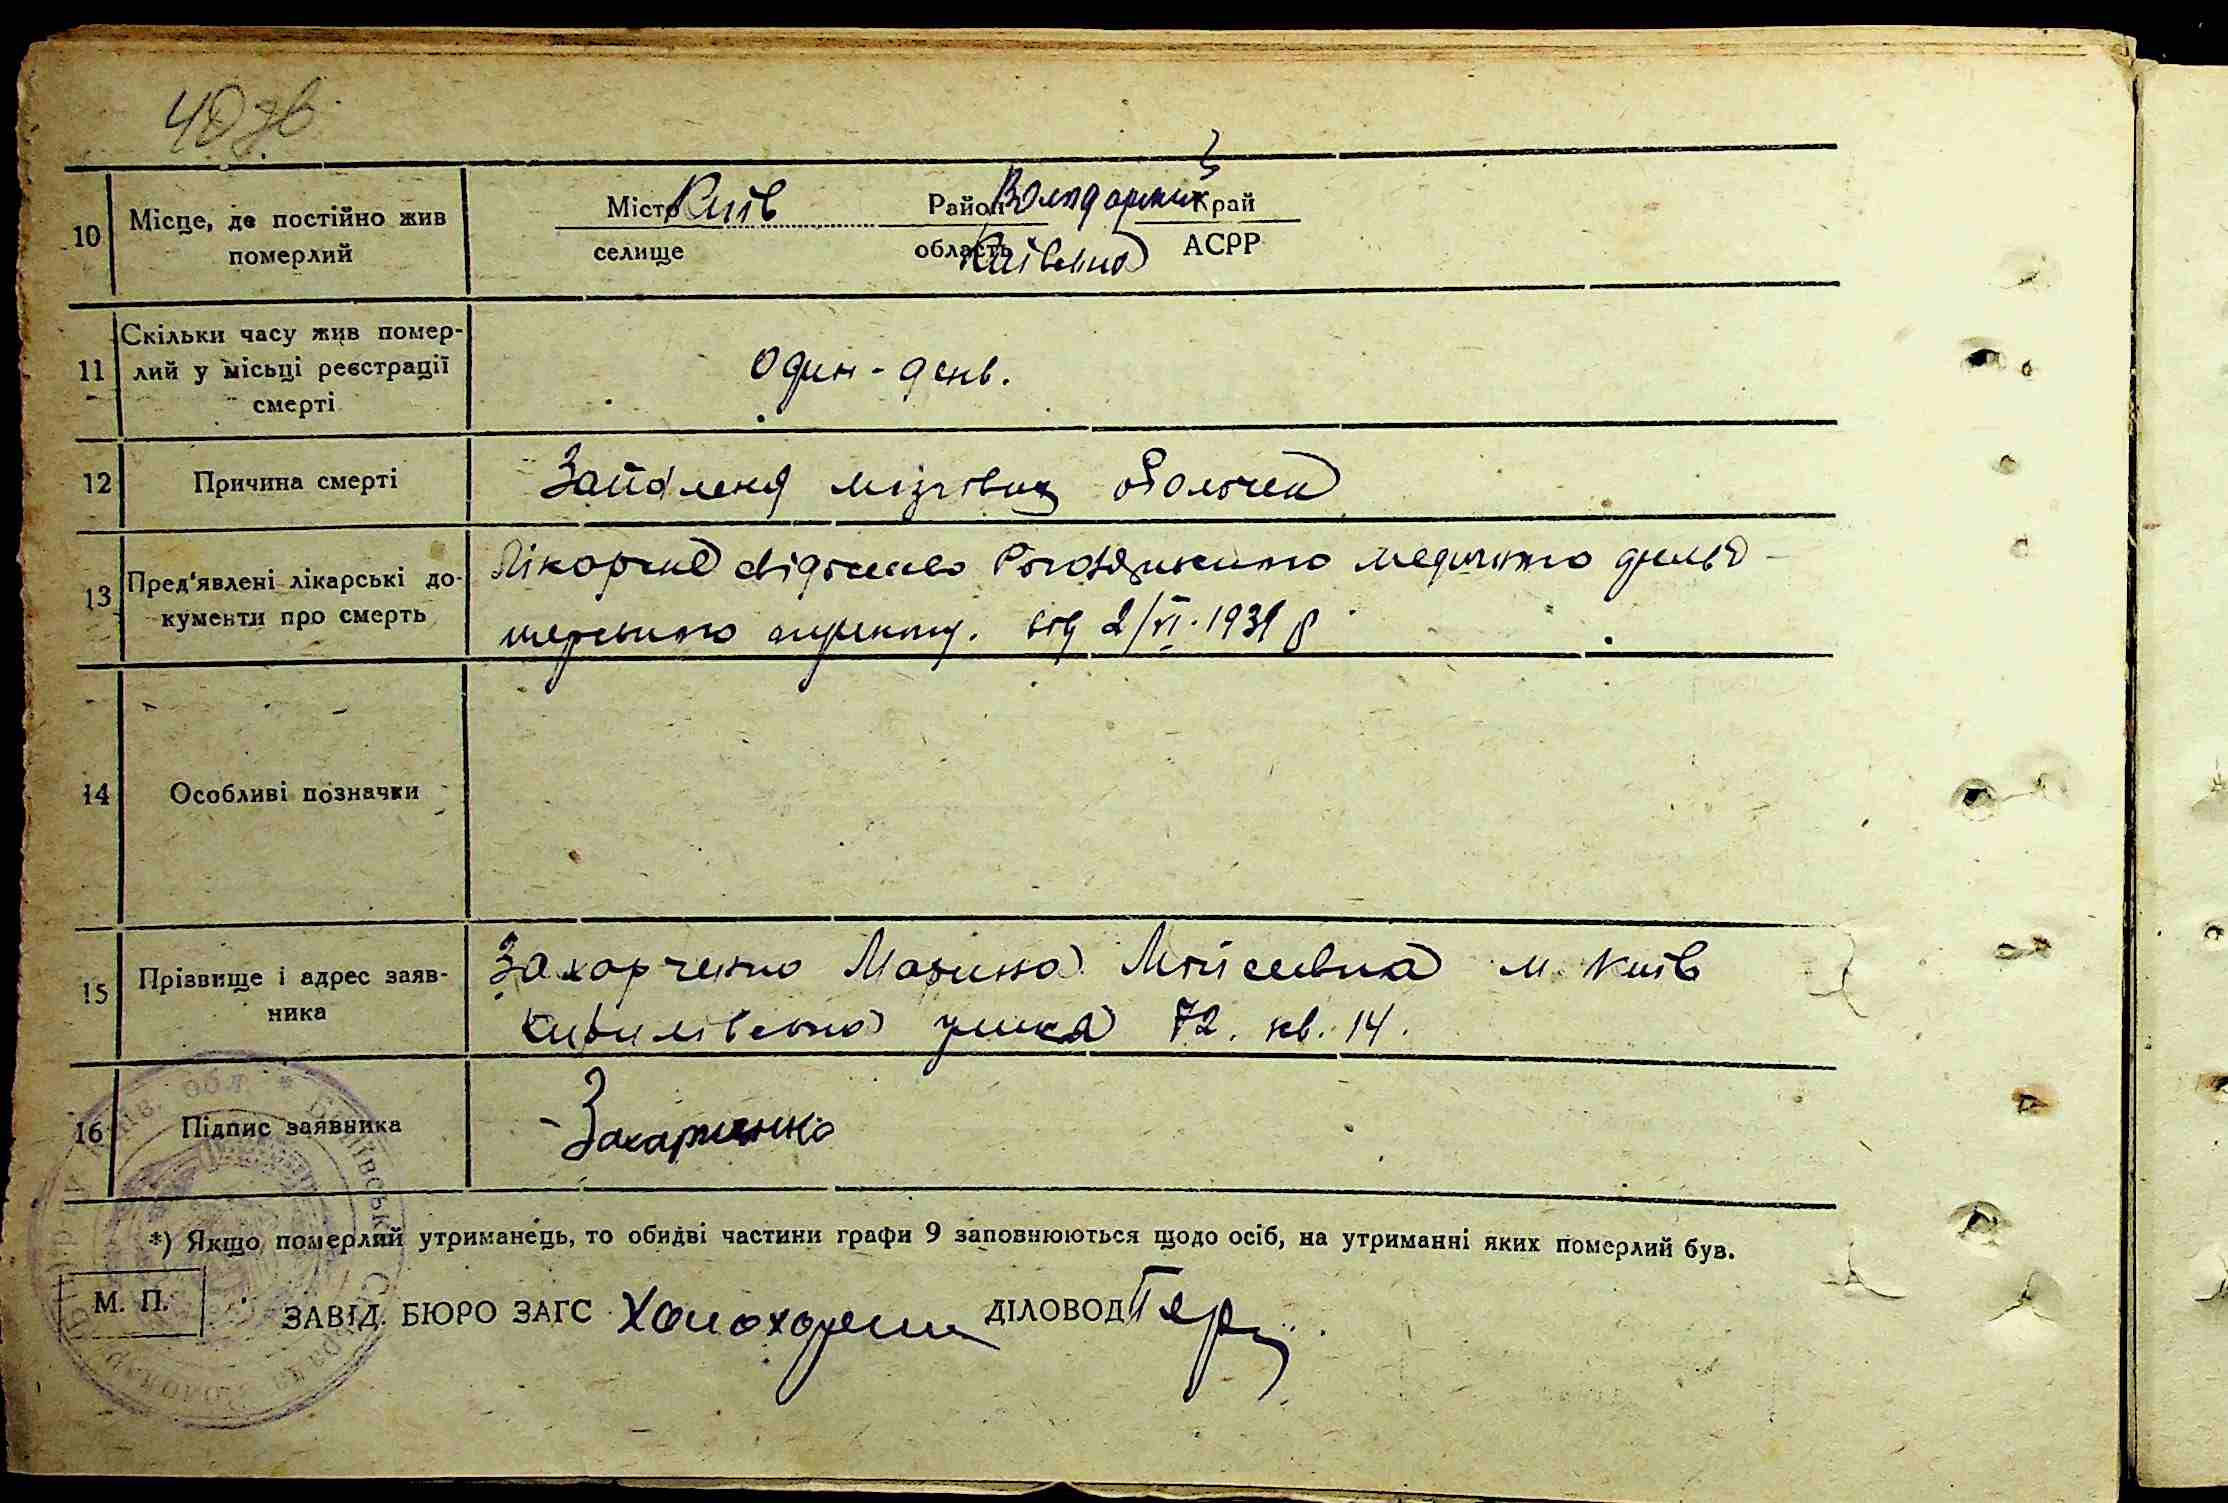 40 зв.
10 Місце, де постійно жив померлий
Місто Київ Район Володарський Край
селище область Київська АСРР
11 Скільки часу жив помер-
лий у місьці реєстрації
смерті
Один - день.
12 Причина смерті
Запаленя мізговиз оболочек
13 Пред'явлені лікарські до-
кументи про смерть
Лікарске свідоцтво медичного фельд-
шерського пункту. від 2/VI. 1939 р
14 Особливі позначки
15 Прізвище і адрес заяв-
ника
Захарченко Марина Мойсеєвна м. Київ
Кирилівська улика 72. кв. 14.
16 Підпис заявника
Захарченко
*) Якщо померлий утриманець, то обидві частини графи 9 заповнюються щодо осіб, на утриманні яких померлий був.
М. П.
ЗАВІД. БЮРО ЗАГС ДІЛОВОД